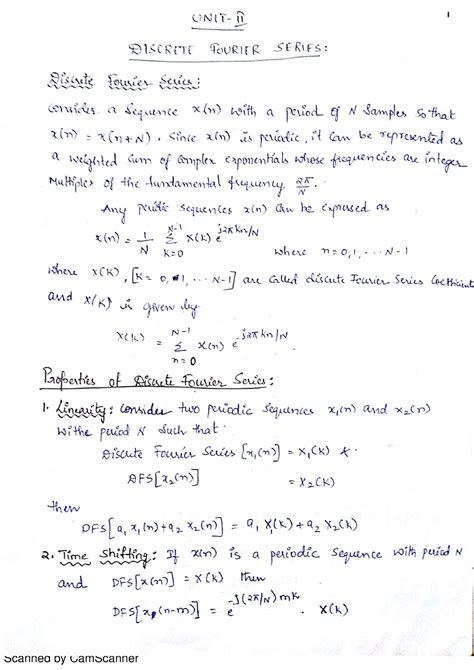 1
UNIT-II
DISCRETE FOURIER SERIES:
Discrete Fourier Series:
Consider a Sequence x(n) with a period of N Samples so that
x(n) = x(n+N). Since x(n) is periodic, it can be represented as
a weighted sum of complex exponentials whose frequencies are integer
Multiples of the fundamental frequency 2π/N.
Any peridic sequences x(n) can be expressed as
x(n) = 1/N N-1 Σ K=0 X(K) e^j2πkn/N where n=0,1,··N-1
where X(K), [K= 0, 1, ··· N-1] are called discute Fourier Series Coefficients
and X(K) is given by
X(K) = N-1 Σ n=0 x(n) e^-j2πkn/N
Properties of Discrete Fourier Series:
1. Linearity: Consider two periodic sequences x₁(n) and x₂(n)
withe period N such that
Discute Fourier Series [x₁(n)] = X₁(K) &
DFS[x₂(n)] = X₂(K)
then
DFS[a₁ x₁(n)+a₂ x₂(n)] = a₁ X₁(K)+a₂ X₂(K)
2. Time Shifting: If x(n) is a periodic sequence with period N
and DFS[x(n)] = X(K) then
DFS[x(n-m)] = e^-j(2π/N)mk . X(K)
Scanned by CamScanner